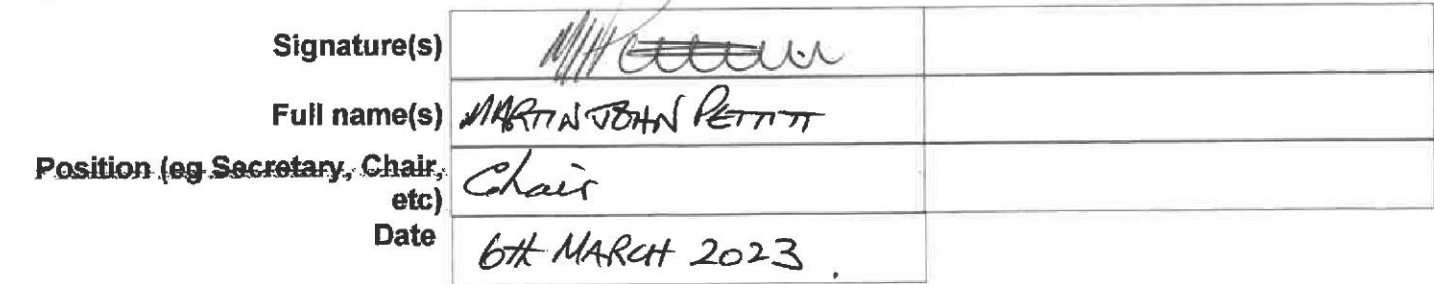 Signature(s)
Full name(s) MARTIN JOHN PETTITT
Position (eg Secretary, Chair, etc) Chair
Date 6TH MARCH 2023.